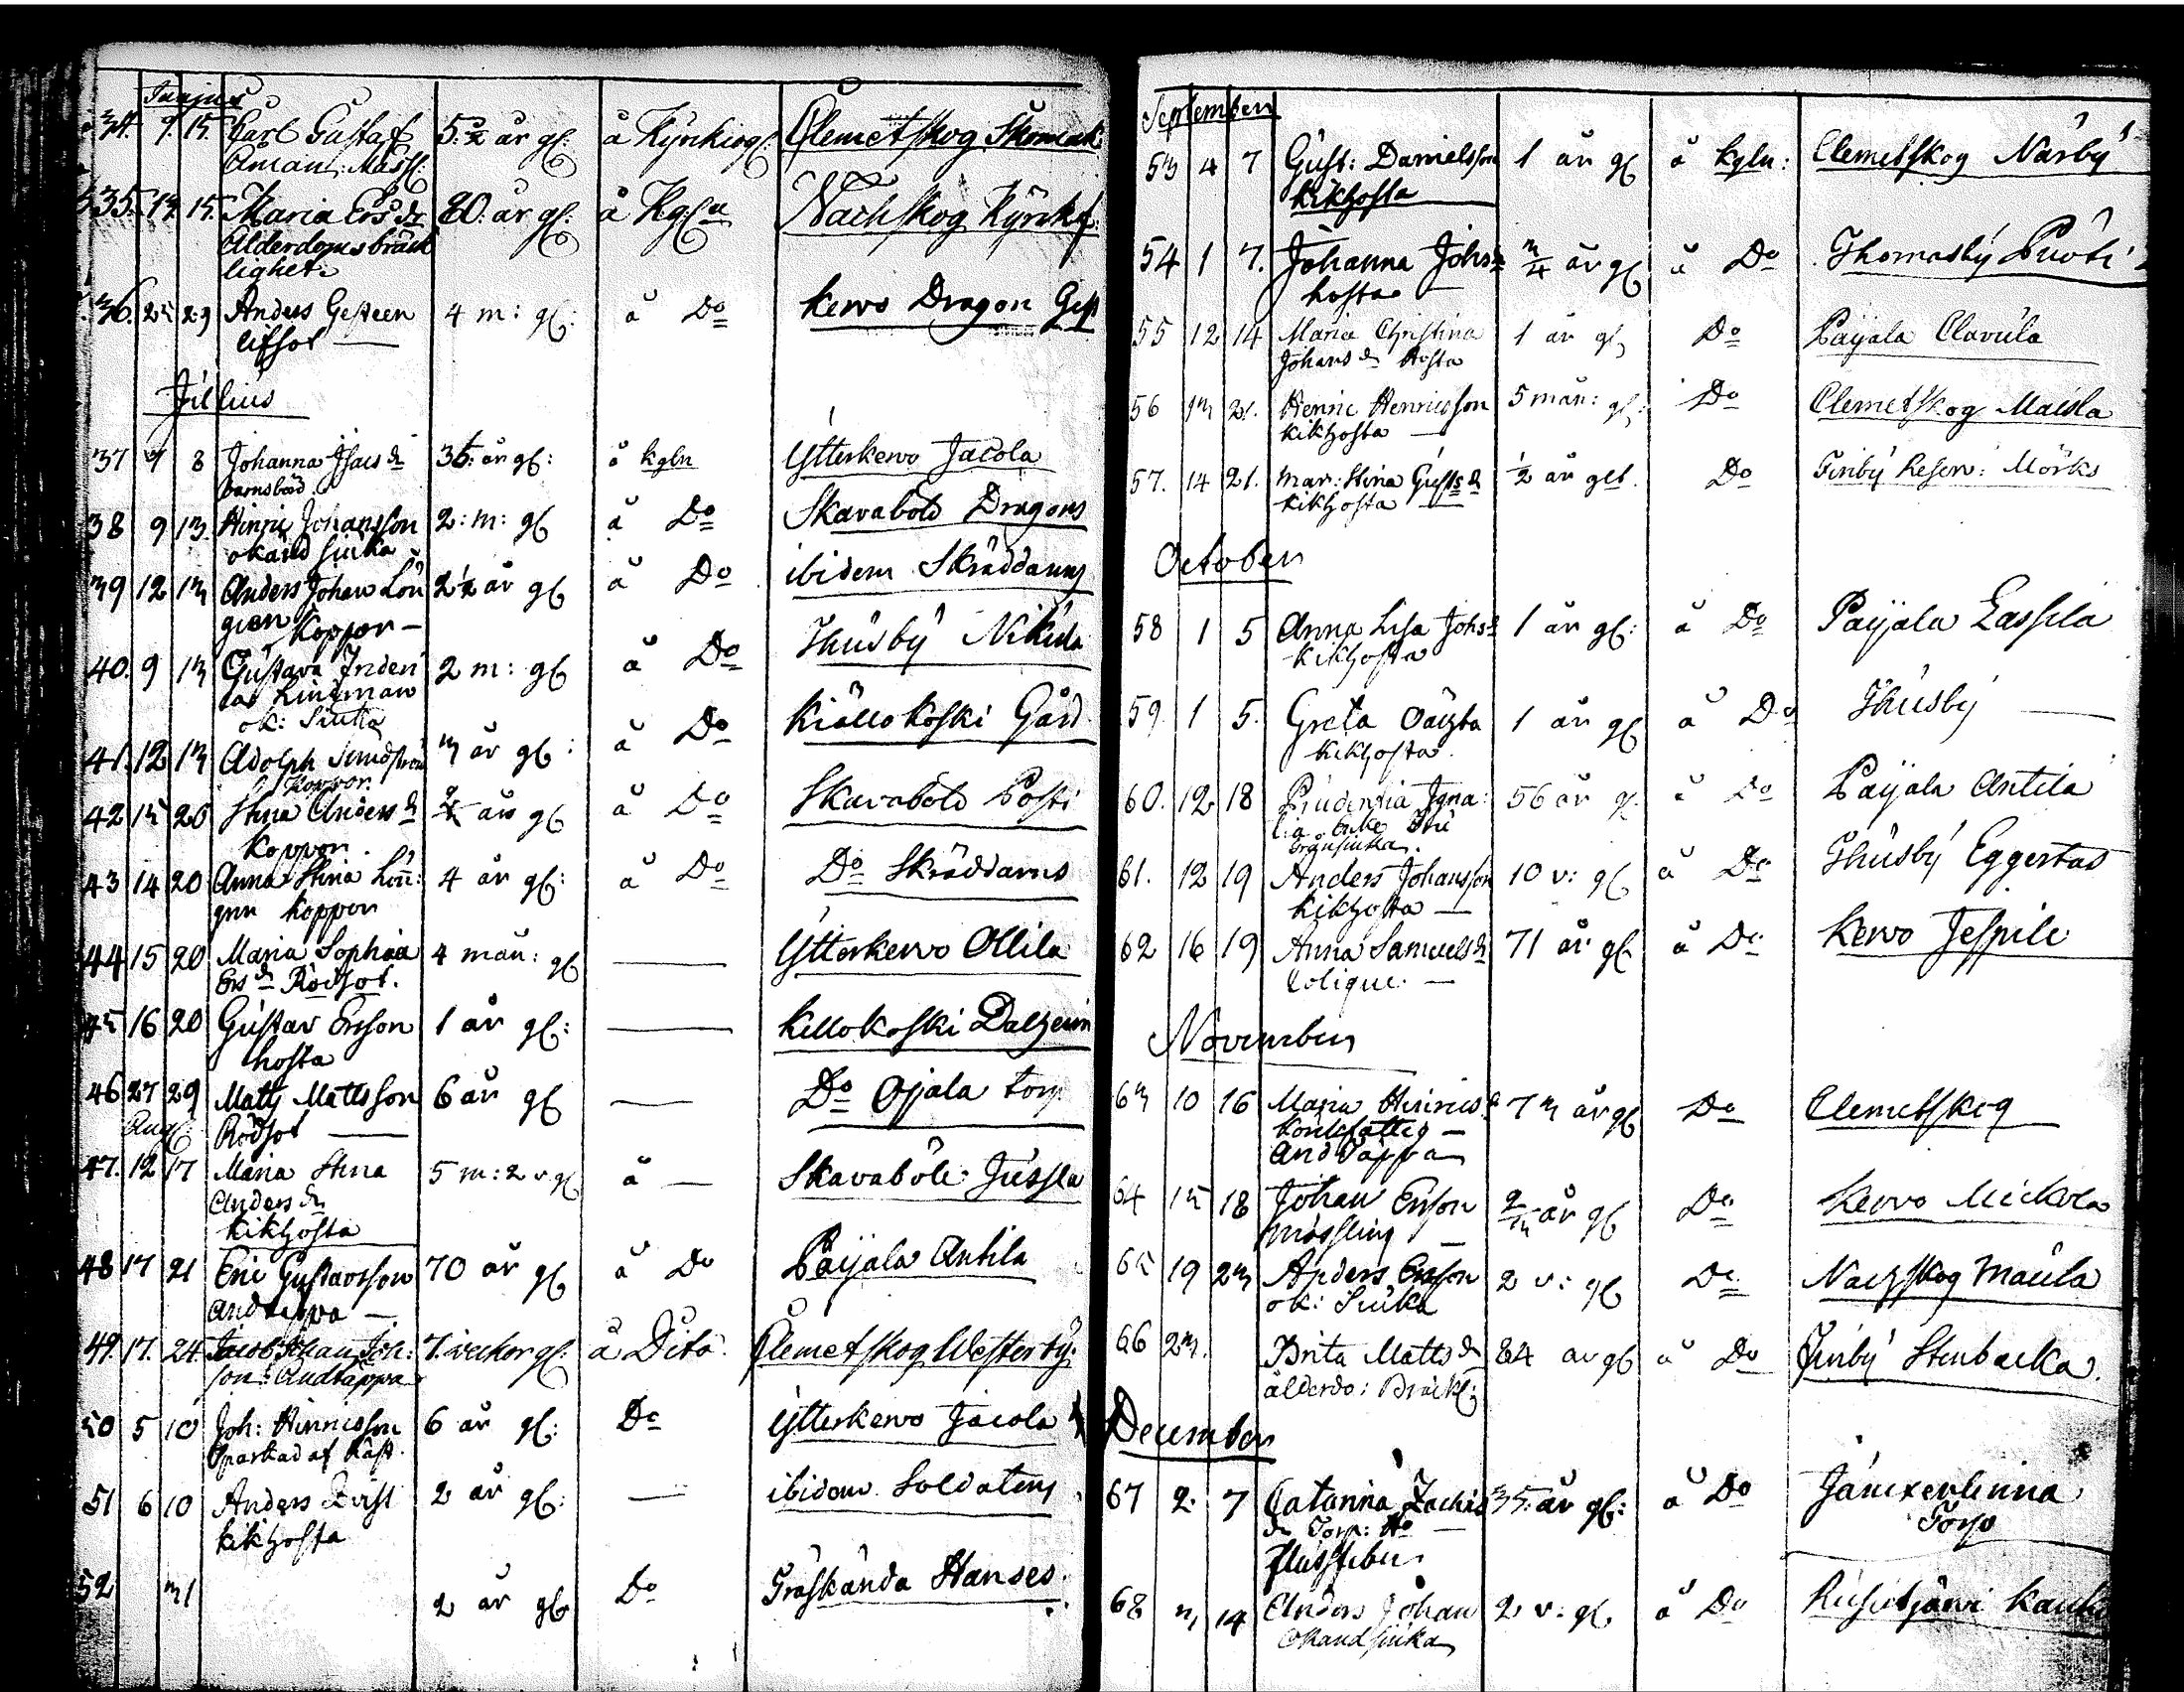 Junius
34. 9. 15. Carl Gustaf 5 ½ år gl: å Kyrkiog: Clemetskog Skomak
Åman: Mässl:
35. 13. 15. Maria Ers dr 80. år gl: å Kgln Nackskog Kyrkh
Ålderdoms bräck
lighet.
36. 25 29 Anders Gesteen 4 m: gl: å Do Kervo Dragon Gest
lifsot
Julius
37 7 8 Johanna Isacs dr 36: år gl: å kgln Ytterkervo Jacola
barnsbörd.
38 9 13. Hinric Johansson 2: m: gl å Do Skavaböle Dragons
okänd siuka
39 12 13 Anders Johan Lön 2 ½ år gl å Do ibidem Skräddarns
gren Koppor
40. 9 13 Gustava 2 m: gl å Do Thusby Nikula
Lindman
ok: Siuka
41. 12 13 Adolph Sundström 3 år gl: å Do Kiällokoski Gård
Koppor.
42 15 20 Stina Anders dr år gl å Do Skavaböle Posti
Koppor.
43 14 20 Anna Stina Lön: 4 år gl: å Do Do Skräddarns
gren koppor
44 15 20 Maria Sophia 4 mån: gl Ytterkervo Ollila
Ers dr Rödsot.
45 16 20 Gustav Ersson 1 år gl: Killokoski
hosta
46 27 29 Matts Mattsson 6 år gl Do Ojala torp
Rödsot
Aug:
47. 12 17 Maria Stina 5 m: 2 v gl å Skavaböle Jussla
Anders dr
kikhosta
48 17 21 Eric Gustavsson 70 år gl å Do Paijala Antila
andtäppa
49. 17. 24. Jacob Johan Joh: 7. veckor gl: å Dito. Clemetskog Westerby.
son: Andtäppa
50 5 10 Joh: Hinricsson 6 år gl: Do Ytterkervo Jacola
Sparkad af häst.
51 6 10 Anders Qvist 2 år gl: ibidem Soldatens
kikhosta
52 31 2 år gl Do Träskända Hanses.
September
53 4 7 Gust: Danielsson 1 år gl å kgln: Clemetskog Närby
kikhosta
54 1 7. Johanna Johs dr ¾ år gl å Do Thomasby
hosta
55 12 14 Maria Christina 1 år gl Do Paijala Clavula
Johans dr Hosta
56 13 21. Henric Henricsson 5 mån: gl: Do Clemetskog Maisla
kikhosta
57. 14 21. Mar: Stina Gusts dr ½ år gl. Do Finby Reserv: Mörks
kikhosta
October
58 1 5 Anna Lisa Johs dr 1 år gl: å Do Paijala Lassila
kikhosta
59. 1 5. Greta Oägta 1 år gl å Do Thusby
kikhosta.
60. 12 18 Prudentia Igna: 56 år gl. å Do Paijala Antila
61. 12 19 Anders Johansson 10 v: gl å Do Thusby Eggertas
kikhosta
62 16 19 Anna Samuels dr 71 år gl å Do Kervo Jespile
Colique.
November
63 10 16 Maria Hinrics dr 73 år gl Do Clemetskog
Andtäppa
64 15 18 Johan Ersson år gl Do Kervo Mickola
mässling
65 19 23 Anders Ersson 2 v: gl Do Nackskog Maula
ok: Siuka
66 23. Brita Matts dr 84 år gl å Do Finby Stenbacka.
ålderdo: Bräckl:
December
67 2. 7 Catarina Zachris 35: år gl: å Do
dr Torp: Ho Torp
flussfeber
68 3 14 Anders Johan 2 v: gl. å Do Rusutjärvi
Okänd siuka